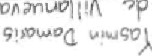 Yasmin Damaris
de Villanueva